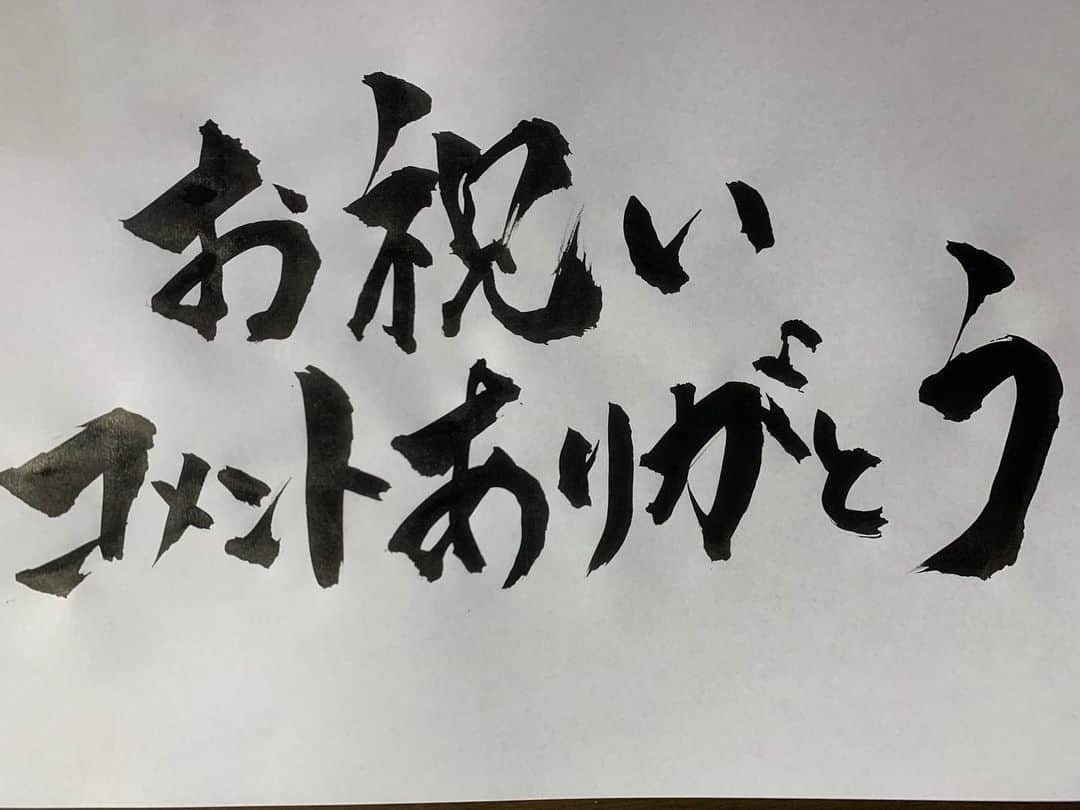 お祝い
コメントありがとう